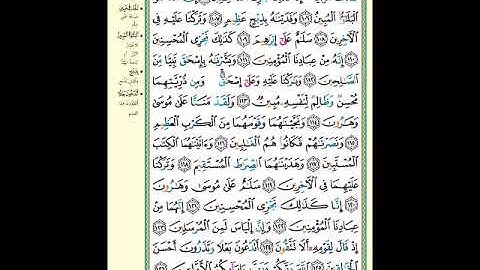 ٱلْبَلَٰٓؤُا۟ ٱلْمُبِينُ ۝١٠٦ وَفَدَيْنَٰهُ بِذِبْحٍ عَظِيمٍ ۝١٠٧ وَتَرَكْنَا عَلَيْهِ فِى
ٱلْءَاخِرِينَ ۝١٠٨ سَلَٰمٌ عَلَىٰٓ إِبْرَٰهِيمَ ۝١٠٩ كَذَٰلِكَ نَجْزِى ٱلْمُحْسِنِينَ
۝١١٠ إِنَّهُۥ مِنْ عِبَادِنَا ٱلْمُؤْمِنِينَ ۝١١١ وَبَشَّرْنَٰهُ بِإِسْحَٰقَ نَبِيًّا مِّنَ
ٱلصَّٰلِحِينَ ۝١١٢ وَبَٰرَكْنَا عَلَيْهِ وَعَلَىٰٓ إِسْحَٰقَ ۚ وَمِن ذُرِّيَّتِهِمَا
مُحْسِنٌ وَظَالِمٌ لِّنَفْسِهِۦ مُبِينٌ ۝١١٣ وَلَقَدْ مَنَنَّا عَلَىٰ مُوسَىٰ
وَهَٰرُونَ ۝١١٤ وَنَجَّيْنَٰهُمَا وَقَوْمَهُمَا مِنَ ٱلْكَرْبِ ٱلْعَظِيمِ
۝١١٥ وَنَصَرْنَٰهُمْ فَكَانُوا۟ هُمُ ٱلْغَٰلِبِينَ ۝١١٦ وَءَاتَيْنَٰهُمَا ٱلْكِتَٰبَ
ٱلْمُسْتَبِينَ ۝١١٧ وَهَدَيْنَٰهُمَا ٱلصِّرَٰطَ ٱلْمُسْتَقِيمَ ۝١١٨ وَتَرَكْنَا
عَلَيْهِمَا فِى ٱلْءَاخِرِينَ ۝١١٩ سَلَٰمٌ عَلَىٰ مُوسَىٰ وَهَٰرُونَ
۝١٢٠ إِنَّا كَذَٰلِكَ نَجْزِى ٱلْمُحْسِنِينَ ۝١٢١ إِنَّهُمَا مِنْ
عِبَادِنَا ٱلْمُؤْمِنِينَ ۝١٢٢ وَإِنَّ إِلْيَاسَ لَمِنَ ٱلْمُرْسَلِينَ ۝١٢٣
إِذْ قَالَ لِقَوْمِهِۦٓ أَلَا تَتَّقُونَ ۝١٢٤ أَتَدْعُونَ بَعْلًا وَتَذَرُونَ أَحْسَنَ